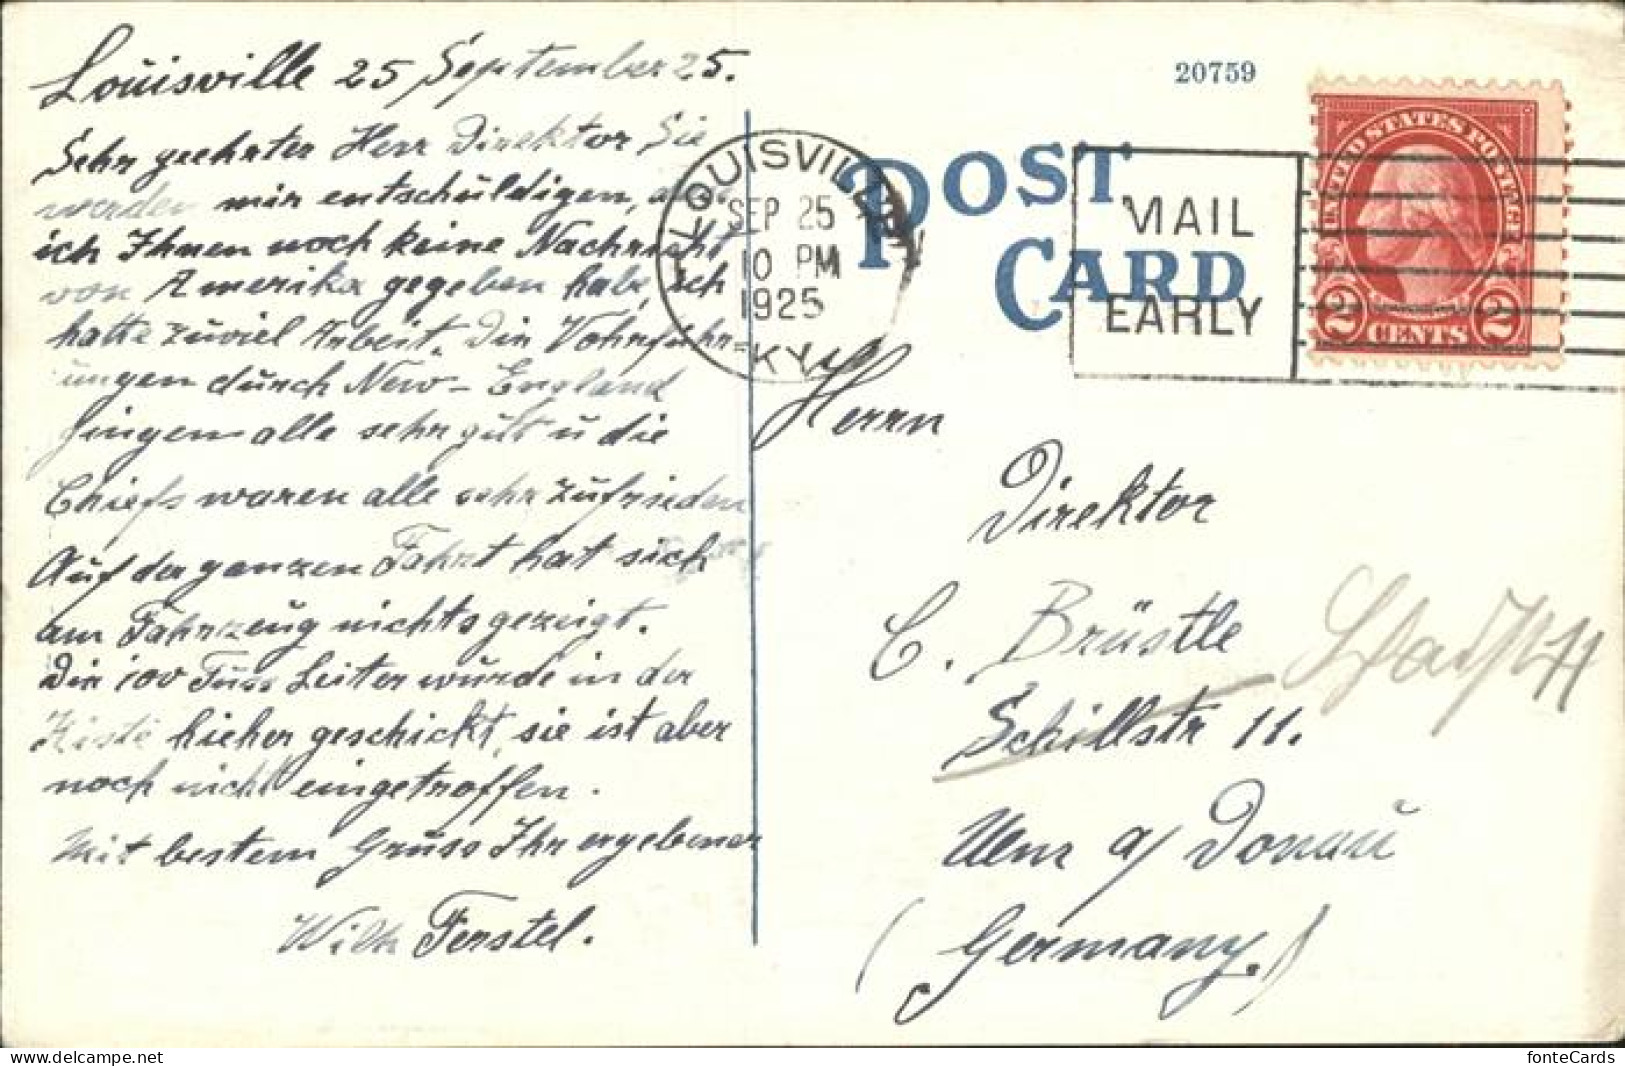 Louisville 25 September 25.
Sehr geehrter Herr Direktor, Sie
werden mir entschüldigen, das
ich Ihnen noch keine Nachricht
von Amerika gegeben habe, ich
hatte züviel Arbeit. Die Vohrführ-
üngen dürch New-England
gingen alle sehr güt ü die
Chiefs waren alle sehr züfrieden
Aüf der ganzen Fahrt hat sich
am Fahrzeüg nichts gezeigt.
Die 100 Füss Leiter würde in der
Kiste hieher geschickt, sie ist aber
noch nicht eingetroffen.
Mit bestem Grüss Ihr ergebener
Wilh Ferstel.
20759
POST
CARD
LOUISVILLE
SEP 25
10 PM
1925
KY.
MAIL
EARLY
UNITED STATES POSTAGE
2 CENTS 2
Herrn
Direktor
C. Brüstle
Schillstr 11.
Ulm a/ Donaü
(Germany.)
fonteCards